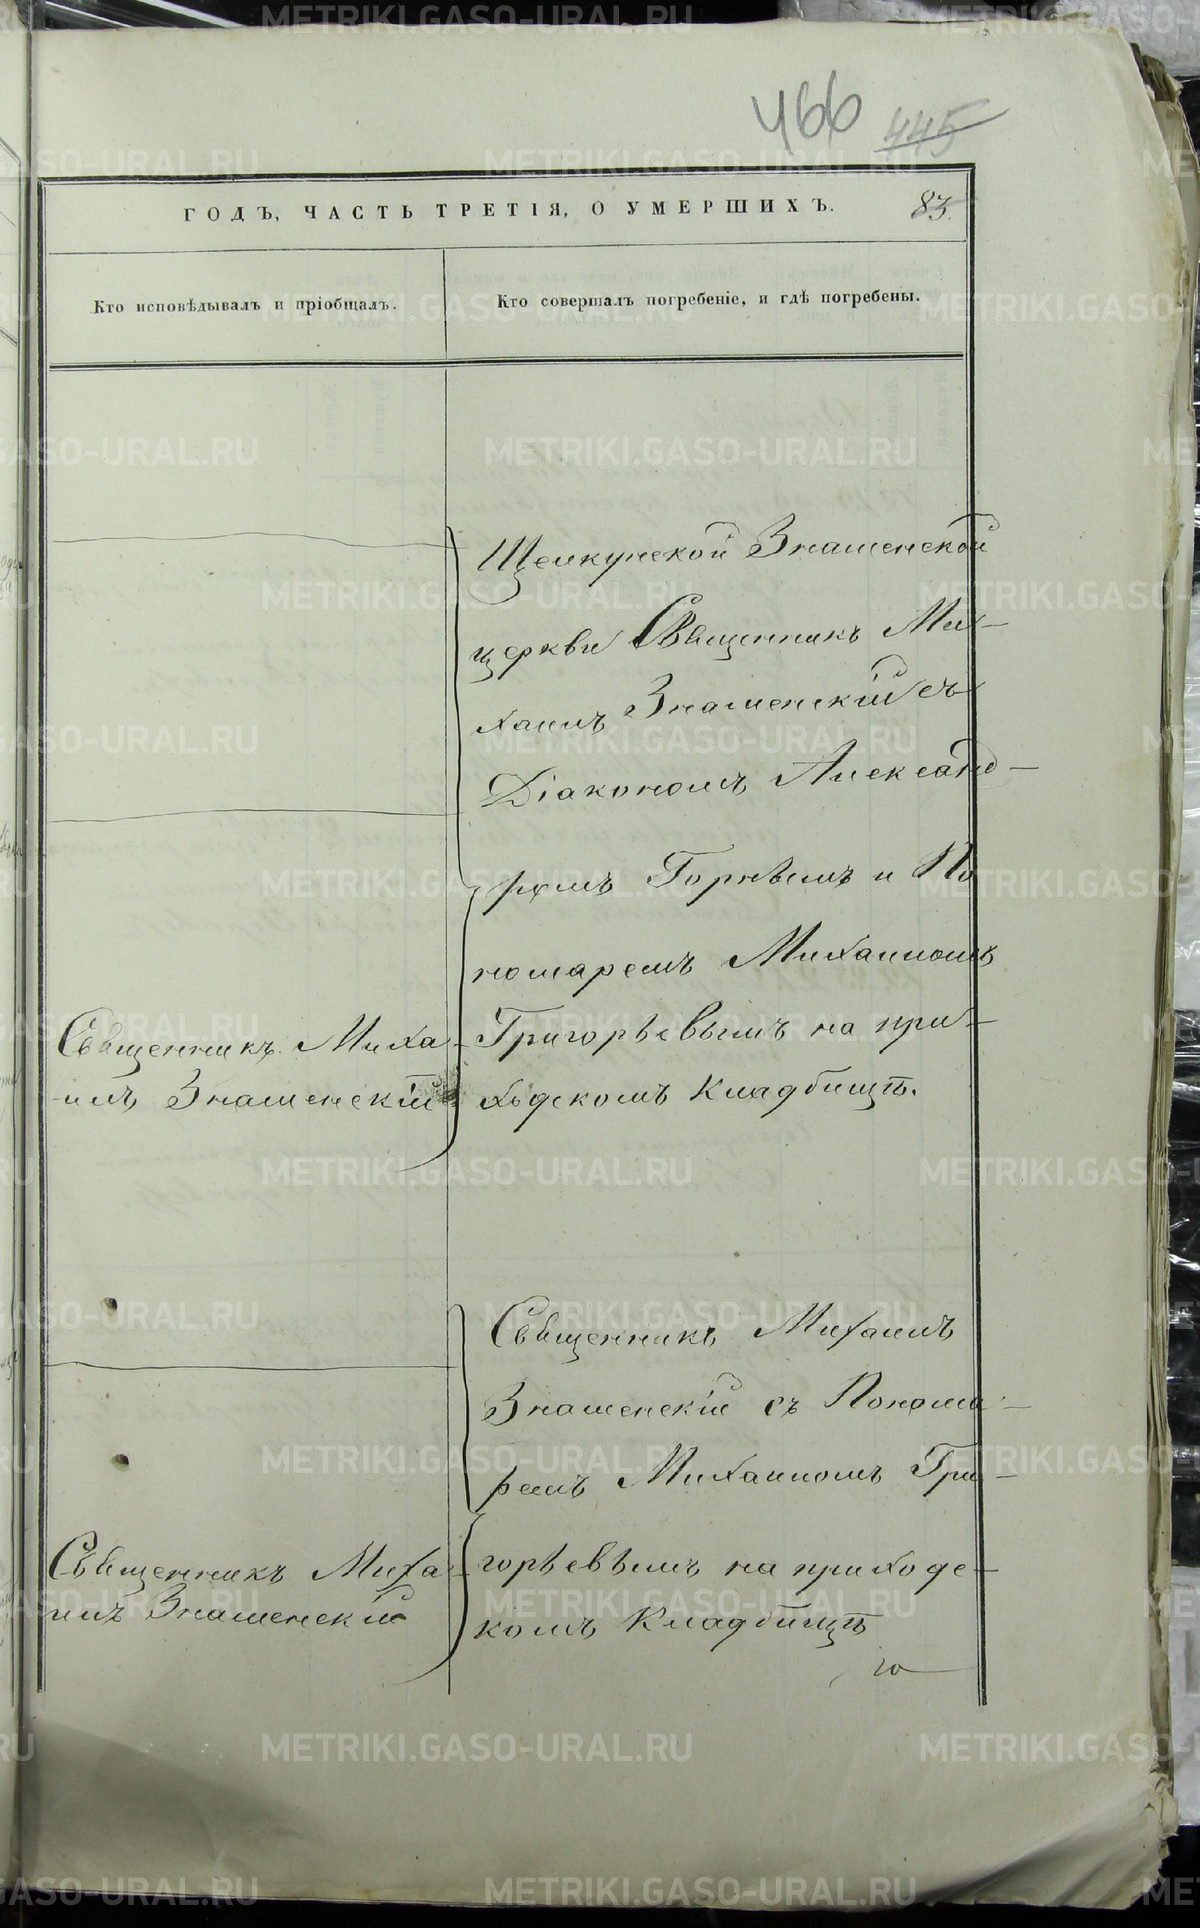 466 445
ГОДЪ, ЧАСТЬ ТРЕТІЯ, О УМЕРШИХЪ. 83.
Кто исповѣдывалъ и пріобщалъ.
Кто совершалъ погребеніе, и гдѣ погребены.
Щелкунской Знаменской
церкви Священникъ Ми-
хаилъ Знаменскій съ
Діакономъ Александ-
ромъ Горнѣмъ и По
номаремъ Михаиломъ
Григорьевымъ на при-
ходскомъ Кладбищѣ.
Священникъ Миха-
илъ Знаменскій
Священникъ Михаилъ
Знаменскій съ Понома-
ремъ Михаиломъ Гри-
горьевымъ на приходс-
комъ Кладбищѣ
Священникъ Миха-
илъ Знаменскій
METRIKI.GASO-URAL.RU